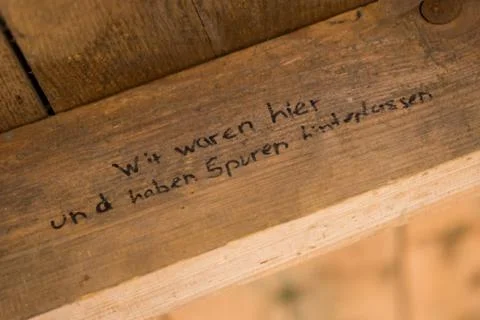 Wir waren hier
und haben Spuren hinterlassen